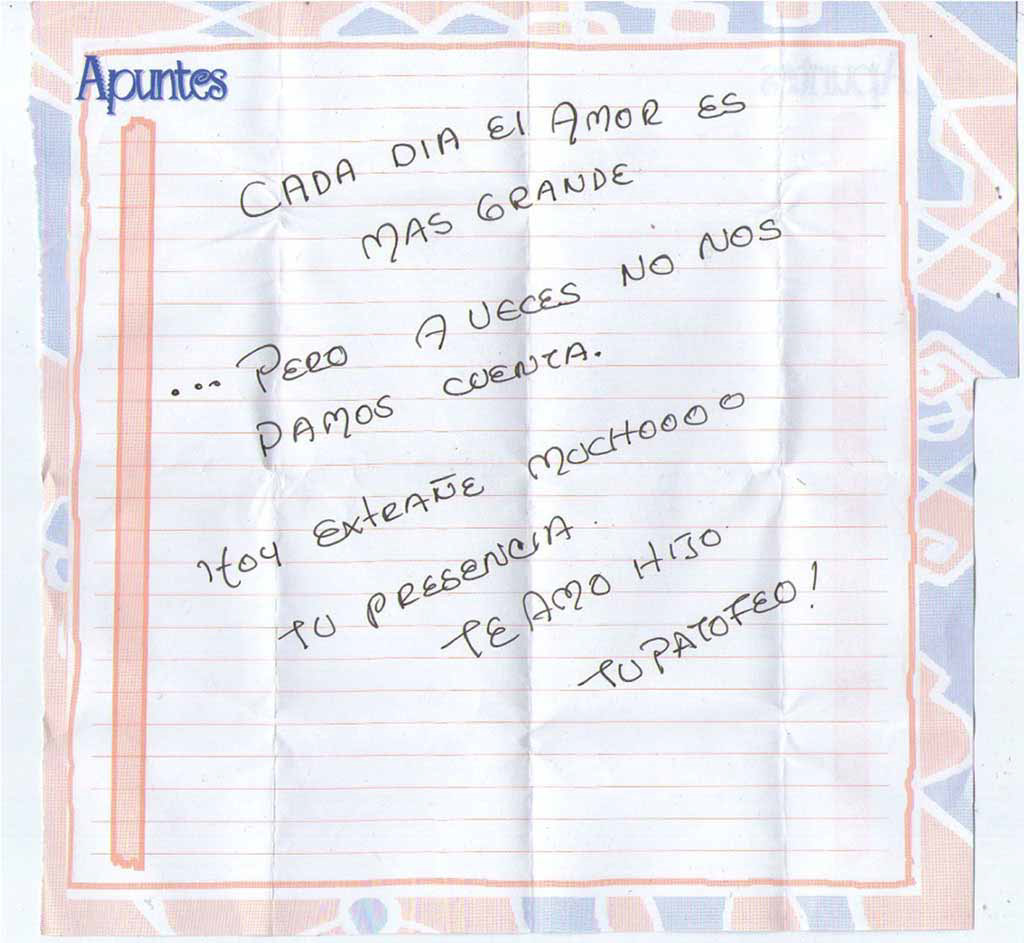 Apuntes
CADA DIA El AMOR ES
MAS GRANDE
... PERO A VECES NO NOS
DAMOS CUENTA.
HOY EXtRAÑE MUCHOOOO
TU PRESENCIA.
TE AMO HIJO
TU PATOFEO!